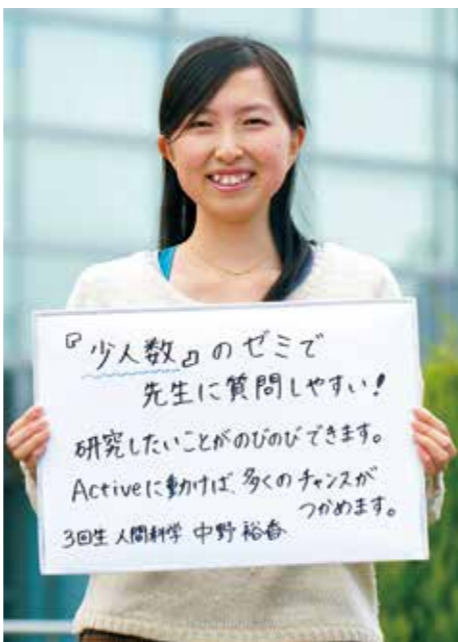 『少人数』のゼミで
先生に質問しやすい!
研究したいことがのびのびできます。
Activeに動けば、多くのチャンスが
つかめます。
3回生 人間科学 中野 裕香